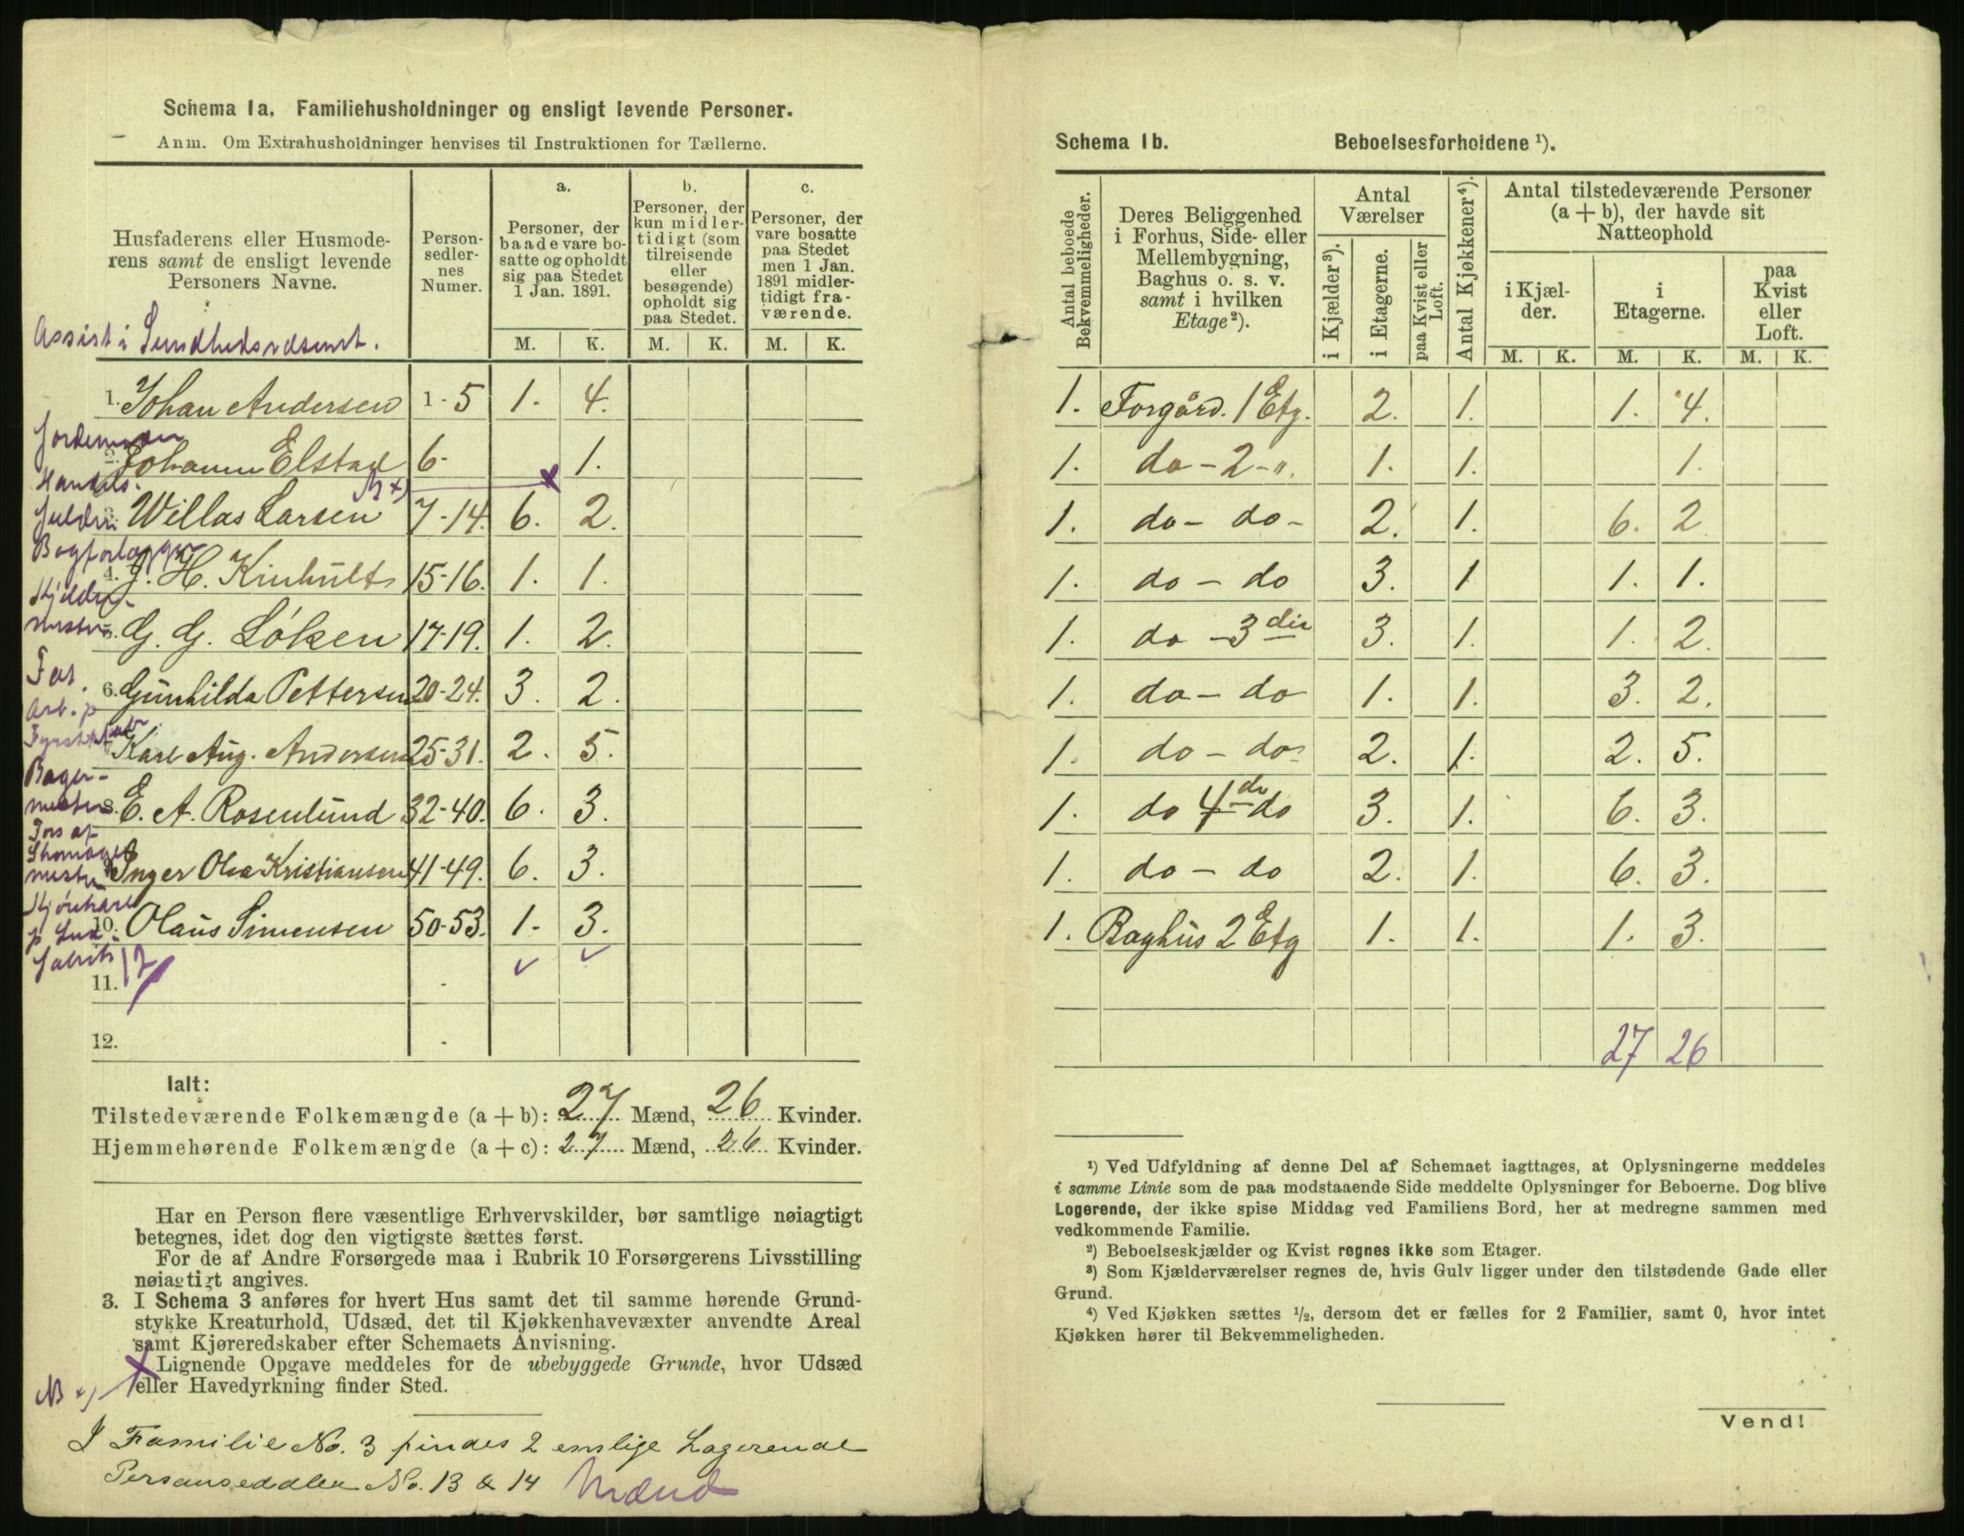 Schema 1a. Familiehusholdninger og ensligt levende Personer.
Anm. Om Extrahusholdninger henvises til Instruktionen for Tællerne.
Husfaderens eller Husmode-
rens samt de ensligt levende
Personers Navne.
Person-
sedler-
nes
Numer.
a.
Personer, der
baade vare bo-
satte og opholdt
sig paa Stedet
1 Jan. 1891.
b.
Personer, der
kun midler-
tidigt (som
tilreisende
eller
besøgende)
opholdt sig
paa Stedet.
c.
Personer, der
vare bosatte
paa Stedet
men 1 Jan.
1891 midler-
tidigt fra-
værende.
M. K. M. K. M. K.
Assist i
1. Johan Andersen 1-5 1. 4.
Jordemoder
2. Elstad 6- 1.
Handels-
3. Willas Larsen 7-14. 6. 2.
NB x)
Bogforlægger
4. J. H. 15-16. 1. 1.
5. G. G. Løken 17-19. 1. 2.
Fas.
6. Gunhilda Pettersen 20-24. 3. 2.
Arb. p
7. Karl Aug. Andersen 25-31. 2. 5.
Bager-
mester
8. E. A. Rosenlund 32-40. 6. 3.
mester
Inger Olea Kristiansen 41-49. 6. 3.
10. Olaus Simensen 50-53. 1. 3.
11.
12.
Ialt:
Tilstedeværende Folkemængde (a + b): 27 Mænd, 26 Kvinder.
Hjemmehørende Folkemængde (a + c): 27 Mænd, 26 Kvinder.
Har en Person flere væsentlige Erhvervskilder, bør samtlige nøiagtigt
betegnes, idet dog den vigtigste sættes først.
For de af Andre Forsørgede maa i Rubrik 10 Forsørgerens Livsstilling
nøiagtigt angives.
3. I Schema 3 anføres for hvert Hus samt det til samme hørende Grund-
stykke Kreaturhold, Udsæd, det til Kjøkkenhavevæxter anvendte Areal
samt Kjøreredskaber efter Schemaets Anvisning.
Lignende Opgave meddeles for de ubebyggede Grunde, hvor Udsæd
eller Havedyrkning finder Sted.
NB x)
I Familie No. 3 findes 2 enslige Logerende
Personseddler No. 13 & 14 Mænd
Schema 1b. Beboelsesforholdene ¹).
Antal beboede
Bekvemmeligheder.
Deres Beliggenhed
i Forhus, Side- eller
Mellembygning,
Baghus o. s. v.
samt i hvilken
Etage²).
Antal
Værelser
i Kjælder³).
i Etagerne.
paa Kvist eller
Loft.
Antal Kjøkkener⁴).
Antal tilstedeværende Personer
(a + b), der havde sit
Natteophold
i Kjæl-
der.
i
Etagerne.
paa
Kvist
eller
Loft.
M. K. M. K. M. K.
1. Forgård. 1 Etg. 2. 1. 1. 4.
1. do - 2 - ". 1. 1. 1.
1. do - do - 2. 1. 6. 2
1. do - do 3. 1 1. 1.
1. do - 3 die 3. 1. 1. 2.
1. do - do 1. 1. 3. 2.
1. do - do 2. 1. 2. 5.
1. do 4 de do 3. 1. 6. 3.
1. do - do 2. 1. 6. 3.
1. Baghus 2 Etg 1. 1. 1. 3.
27 26
¹) Ved Udfyldning af denne Del af Schemaet iagttages, at Oplysningerne meddeles
i samme Linie som de paa modstaaende Side meddelte Oplysninger for Beboerne. Dog blive
Logerende, der ikke spise Middag ved Familiens Bord, her at medregne sammen med
vedkommende Familie.
²) Beboelseskjælder og Kvist regnes ikke som Etager.
³) Som Kjælderværelser regnes de, hvis Gulv ligger under den tilstødende Gade eller
Grund.
⁴) Ved Kjøkken sættes ½, dersom det er fælles for 2 Familier, samt 0, hvor intet
Kjøkken hører til Bekvemmeligheden.
Vend!